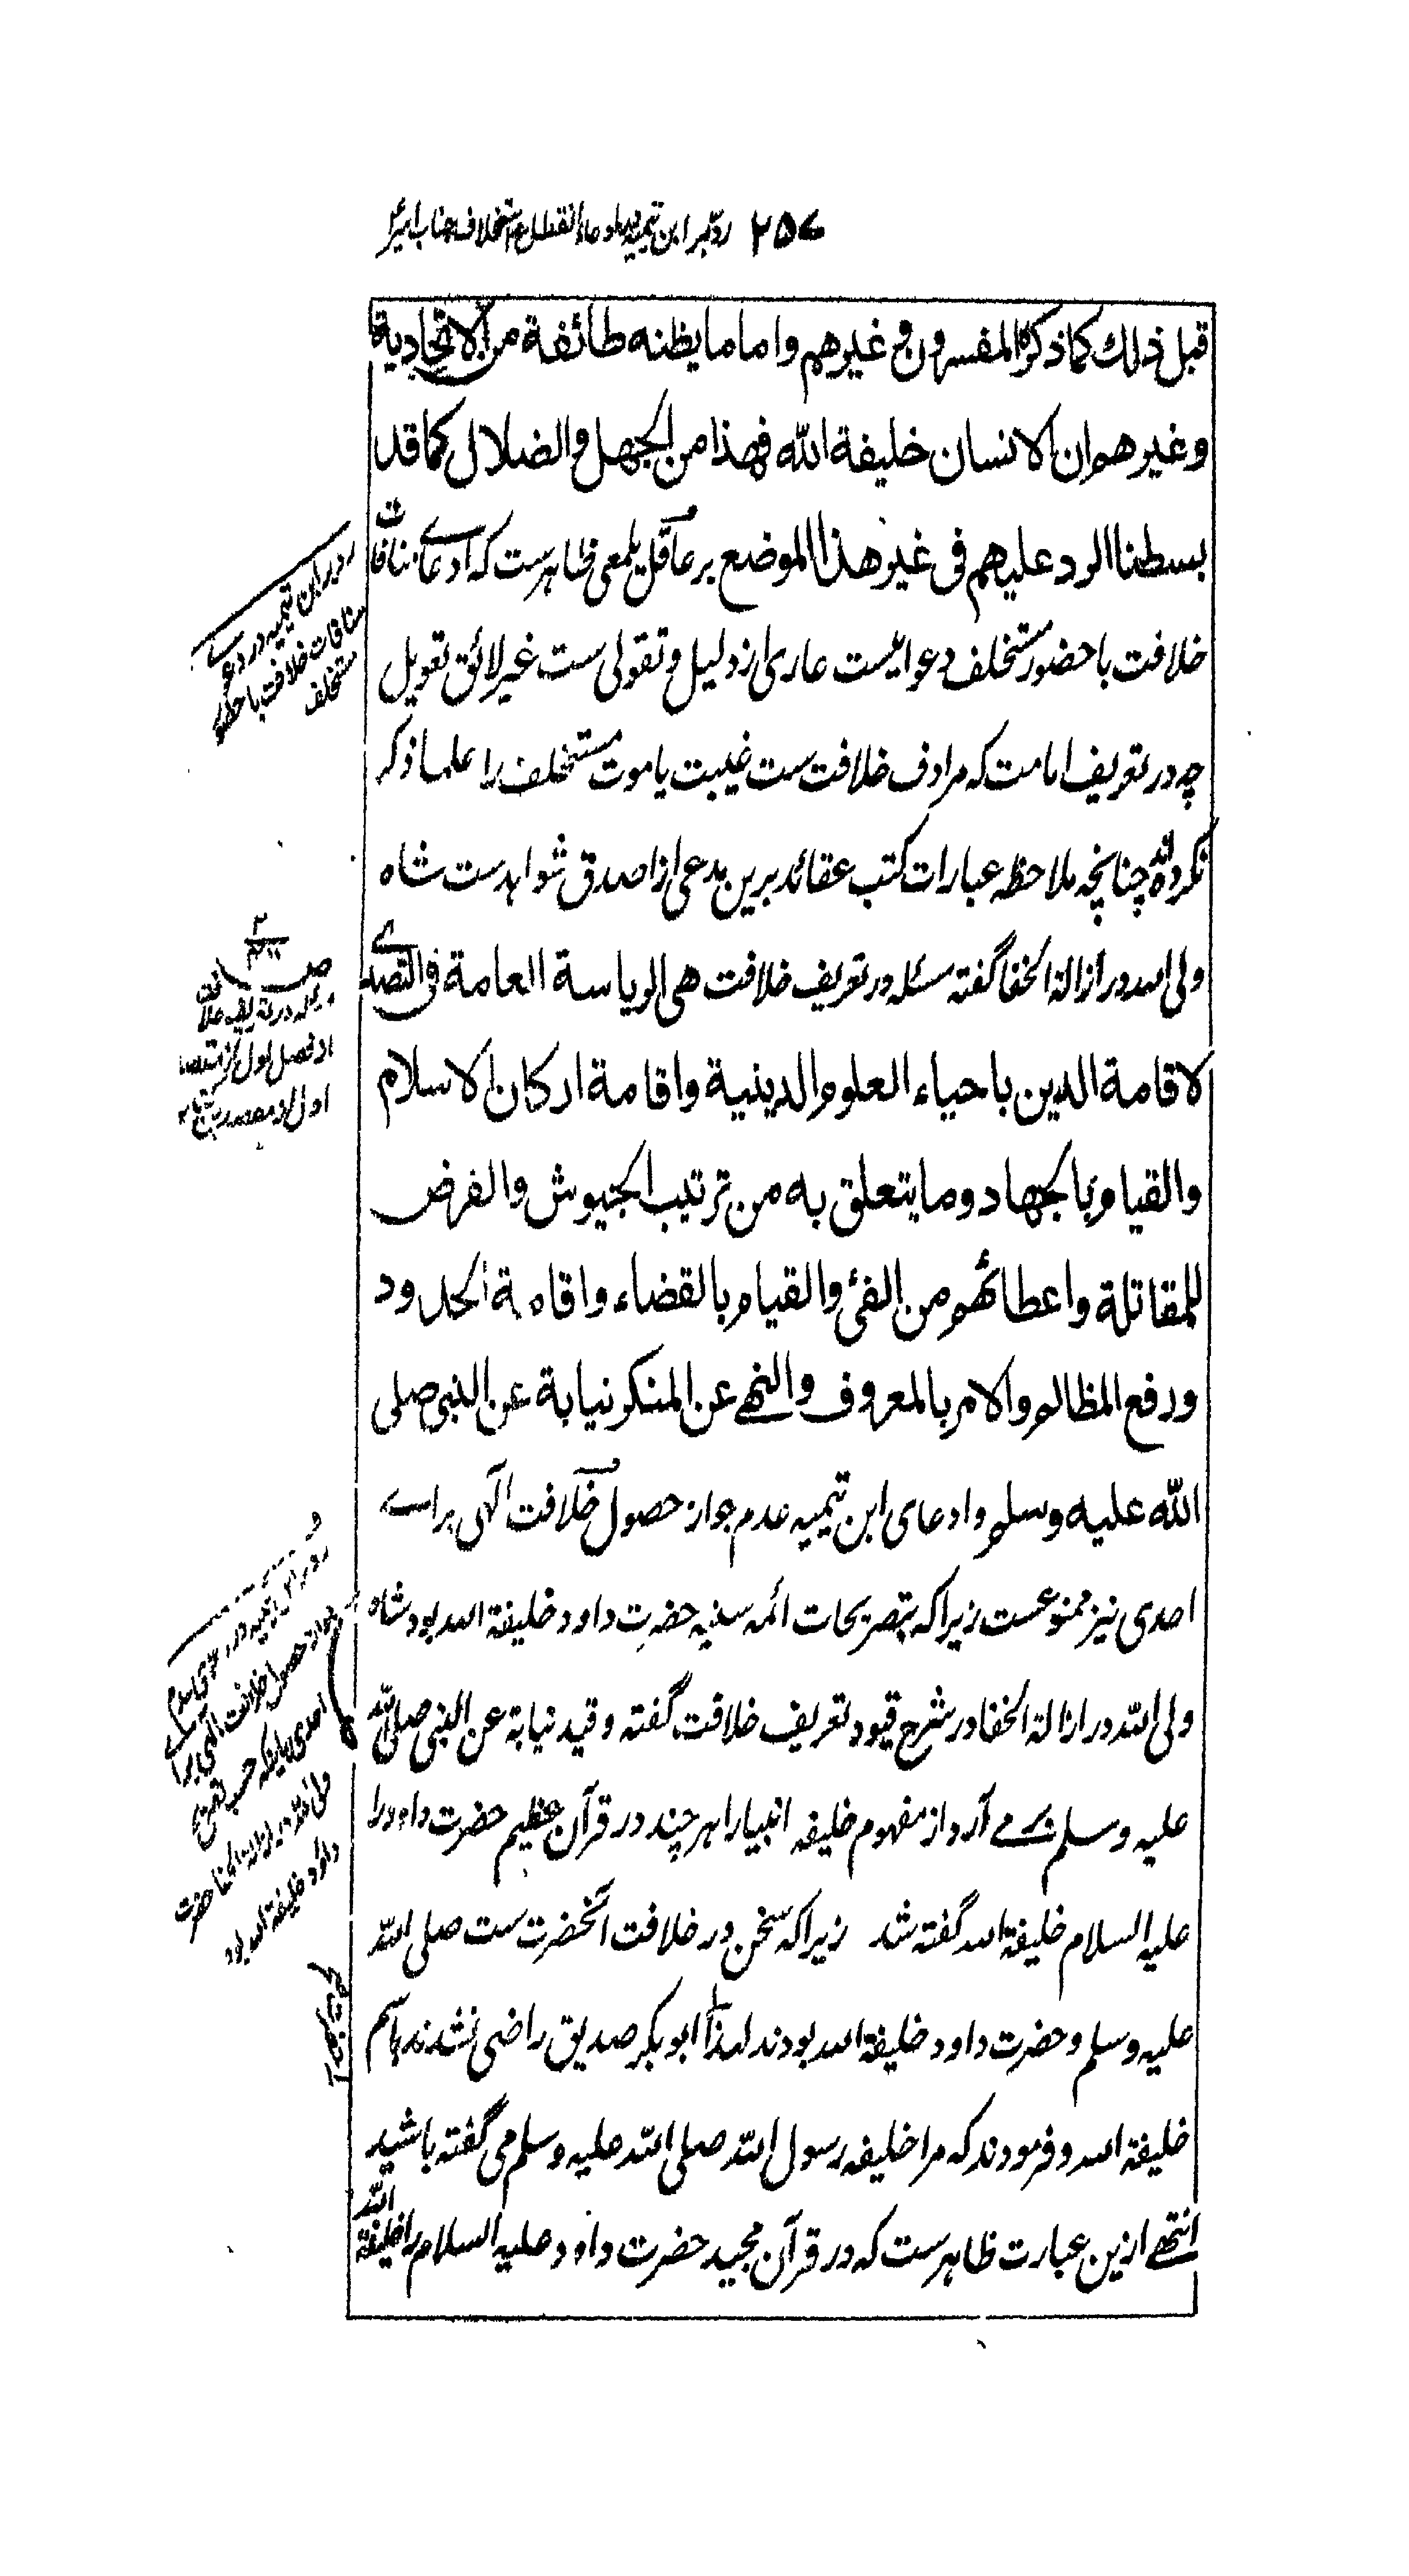 ۲۵۷ رد بر ابن تیمیه استخلاف جناب امیر
قبل ذلك كما ذكره المفسرون وغيرهم واما ما يظنه طائفة من الاتحادية
وغيرهم ان الانسان خليفة الله فهذا من الجهل والضلال كما قد
بسطنا الرد عليهم فى غير هذا الموضع بر عاقل یلمعی ظاهرست که ادعای منافات
خلافت با حضور مستخلف دعوائیست عاری از دلیل و تقولی ست غیر لائق تعویل
چه در تعریف امامت که مرادف خلافت ست غیبت یا موت مستخلف را علما ذکر
نکرده‌اند چنانچه ملاحظه عبارات کتب عقائد برین مدعی از اصدق شواهدست شاه
ولی الله در ازالة الخفا گفته مسئله در تعریف خلافت هى الرياسة العامة فى التصدے
لاقامة الدين باحياء العلوم الدينية واقامة اركان الاسلام
والقيام بالجهاد وما يتعلق به من ترتيب الجيوش والفرض
للمقاتلة واعطائهم من الفئ والقيام بالقضاء واقامة الحدود
ورفع المظالم والامر بالمعروف والنهے عن المنكر نيابة عن النبى صلى
الله عليه وسلم و ادعای ابن تیمیه عدم جواز حصول خلافت الهی براے
احدی نیز ممنوعست زیرا که بتصریحات ائمه سنیه حضرت داود خلیفة الله بود شاه
ولی الله در ازالة الخفا در شرح قیود تعریف خلافت گفته و قید نیابة عن النبی صلی الله
علیه وسلم برمے آرد از مفهوم خلیفه انبیا را هر چند در قرآن عظیم حضرت داود را
علیه السلام خلیفة الله گفته شد زیرا که سخن در خلافت آنحضرت ست صلی الله
علیه وسلم و حضرت داود خلیفة الله بودند لهذا ابوبکر صدیق راضی نشدند باسم
خلیفة الله و فرمودند که مرا خلیفه رسول الله صلی الله علیه وسلم می گفته باشید
انتهے ازین عبارت ظاهرست که در قرآن مجید حضرت داود علیه السلام را خلیفة الله
رد بر ابن تیمیه در دعوے
منافات خلافت با حضور
مستخلف
در تعریف خلافت
از فصل اول
اول از مقصد
رد بر ابن تیمیه در دعوی عدم
جواز حصول خلافت الهی براے
احدی باینکه حسب تصریح
ولی الله در ازالة الخفا حضرت
داود خلیفة الله بود